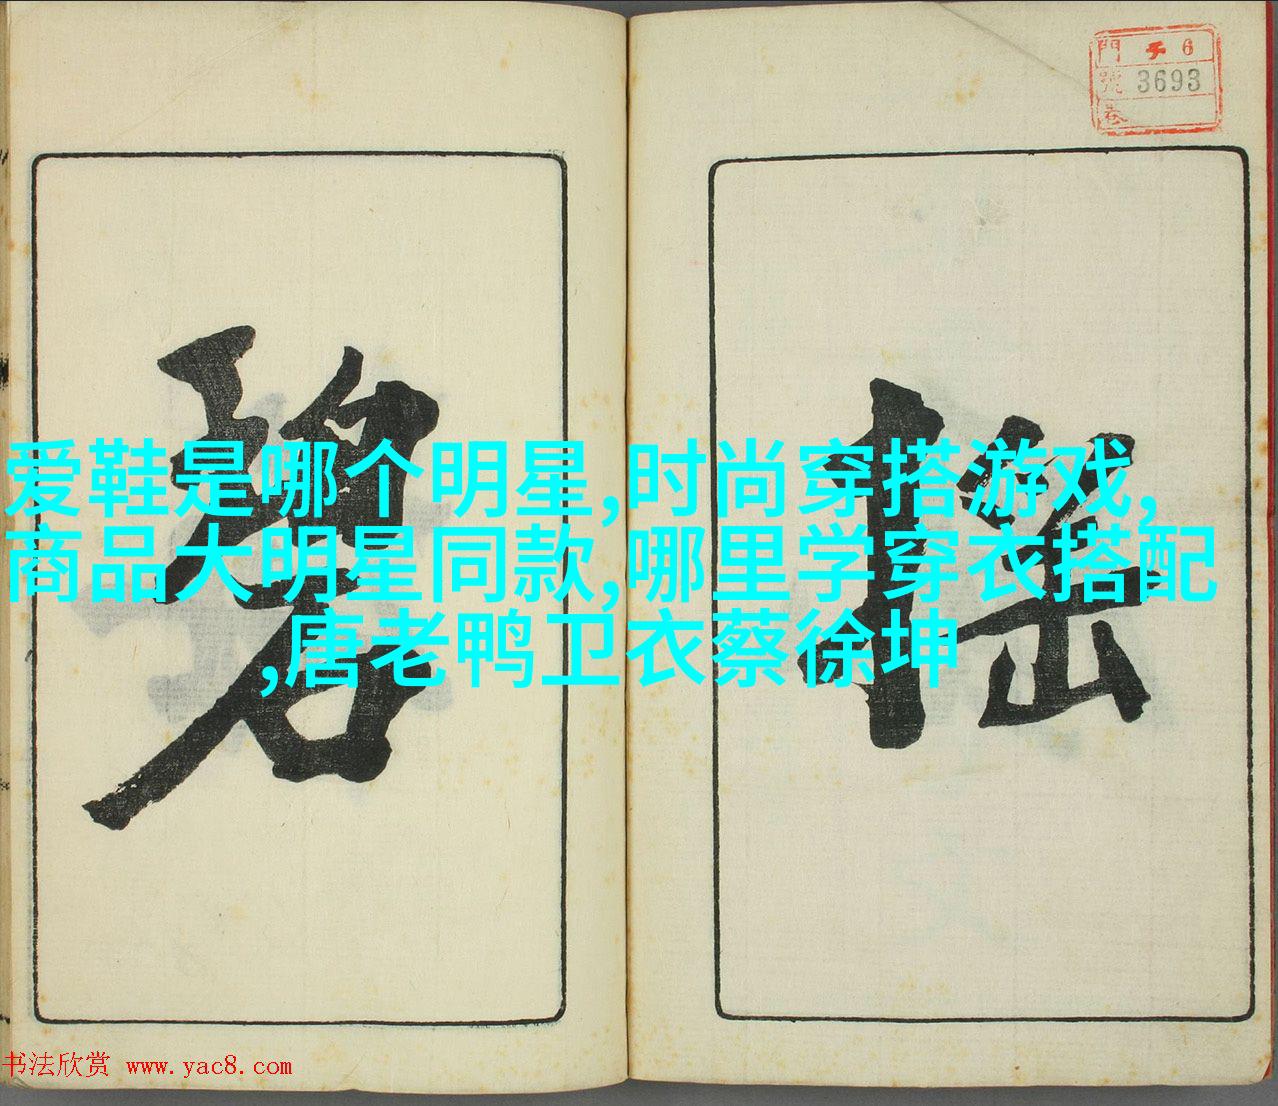 門 チ 6
號 3693
巻
搖
碧
爱鞋是哪个明星,时尚穿搭游戏,
商品大明星同款,哪里学穿衣搭配
,唐老鸭卫衣蔡徐坤
书法欣赏 www.yac8.com